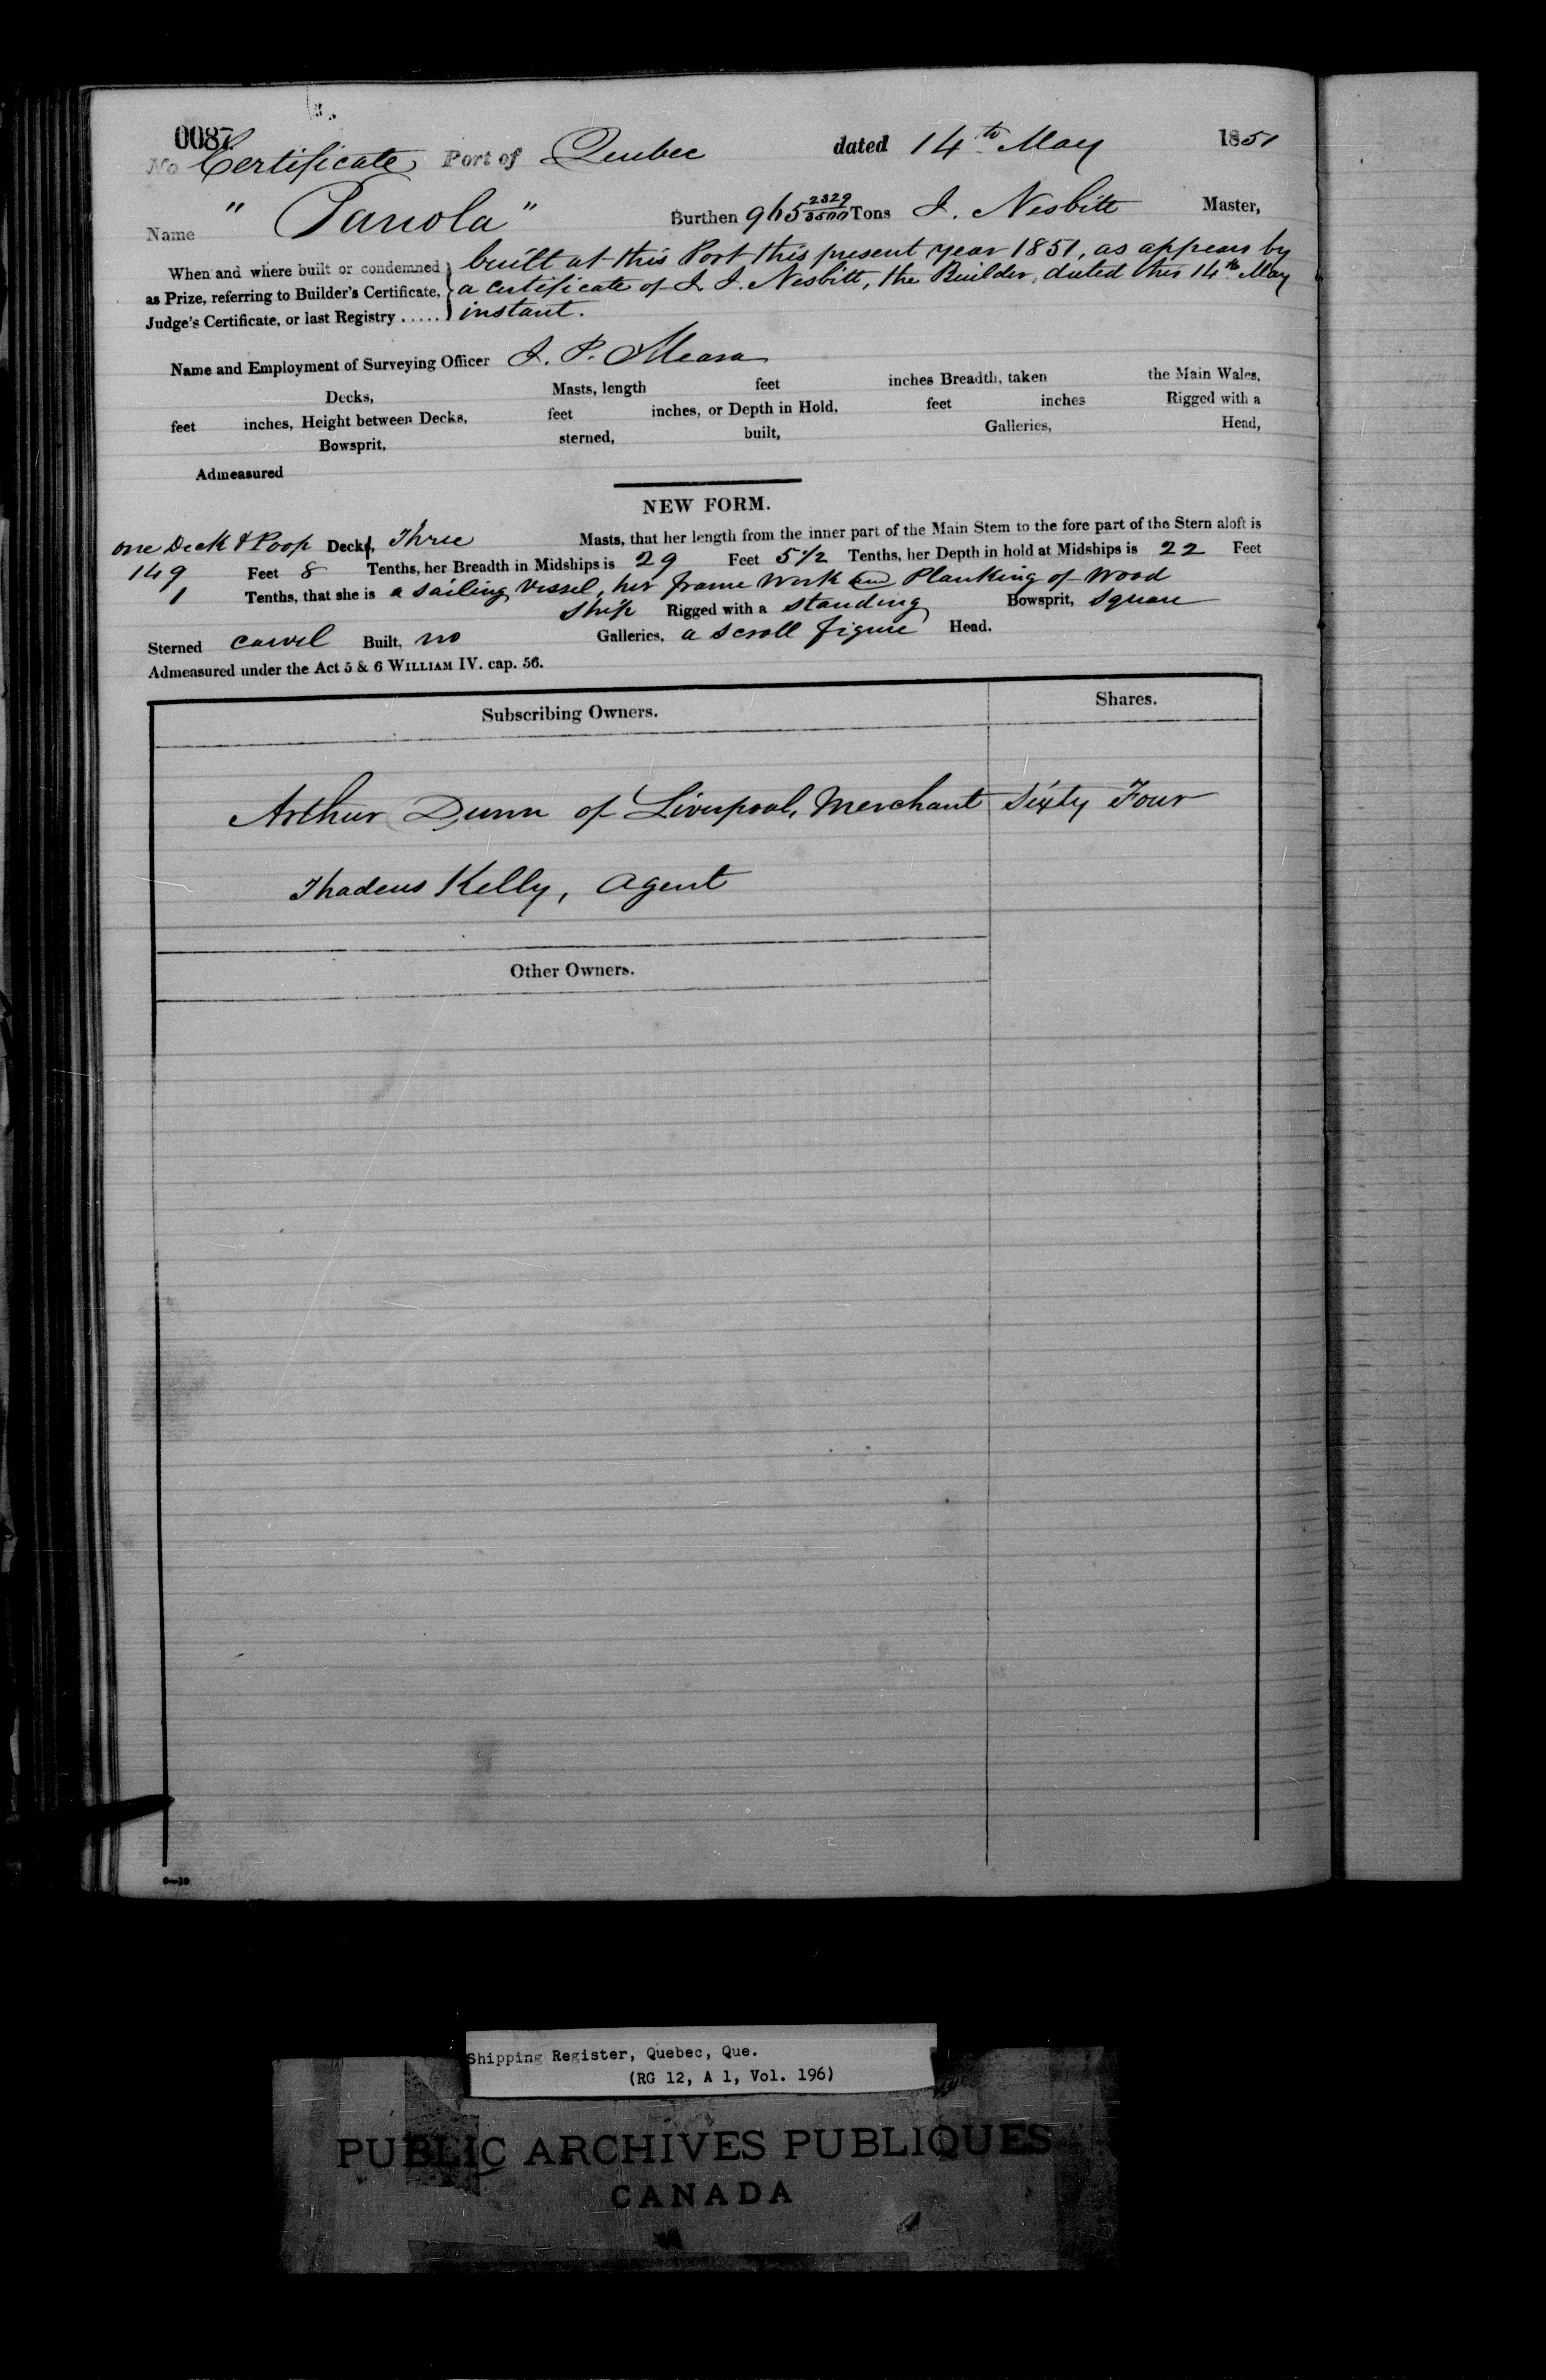 0087
No Certificate Port of Quebec dated 14th May 1851
Name "Panola" Burthen 965 2329/3500 Tons J. Nesbitt Master,
When and where built or condemned as Prize, referring to Builder's Certificate, Judge's Certificate, or last Registry ..... built at this Port this present year 1851, as appears by
a certificate of J. J. Nesbitt, the Builder, dated this 14th May
instant.
Name and Employment of Surveying Officer J. P. Meara
Decks, Masts, length feet inches Breadth, taken the Main Wales,
feet inches, Height between Decks, feet inches, or Depth in Hold, feet inches Rigged with a
Bowsprit, sterned, built, Galleries, Head,
Admeasured
NEW FORM.
one Deck & Poop Deck, Three Masts, that her length from the inner part of the Main Stem to the fore part of the Stern aloft is
149 Feet 8 Tenths, her Breadth in Midships is 29 Feet 5 1/2 Tenths, her Depth in hold at Midships is 22 Feet
1 Tenths, that she is a sailing vessel, her frame work and Planking of wood
Ship Rigged with a standing Bowsprit, square
Sterned carvel Built, no Galleries, a scroll figure Head.
Admeasured under the Act 5 & 6 WILLIAM IV. cap. 56.
Subscribing Owners. Shares.
Arthur Dunn of Liverpool, Merchant Sixty Four
Thadeus Kelly, Agent
Other Owners.
Shipping Register, Quebec, Que.
(RG 12, A 1, Vol. 196)
PUBLIC ARCHIVES PUBLIQUES
CANADA